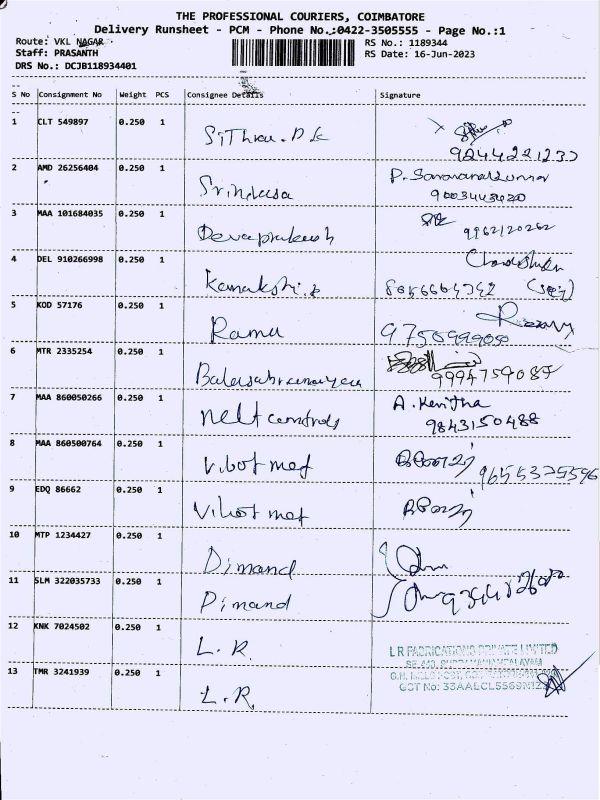 THE PROFESSIONAL COURIERS, COIMBATORE
Delivery Runsheet - PCM - Phone No.:0422-3505555 - Page No.:1
Route: VKL NAGAR RS No.: 1189344
Staff: PRASANTH RS Date: 16-Jun-2023
DRS No.: DCJB118934401
S No Consignment No Weight PCS Consignee Details Signature
1 CLT 549897 0.250 1
9244221233
2 AMD 26256404 0.250 1 P. Saravanakumar
Srinivasa 9003443420
3 MAA 101684035 0.250 1
Devaprakash 9962120262
4 DEL 910266998 0.250 1
Kamakshi
5 KOD 57176 0.250 1
Ramu
6 MTR 2335254 0.250 1
9994759087
7 MAA 860050266 0.250 1 A. Kavitha
controls 9843150488
8 MAA 860500764 0.250 1
Vibot met 9655375596
9 EDQ 86662 0.250 1
Vibot met
10 MTP 1234427 0.250 1
Dimand
11 SLM 322035733 0.250 1
Dimand
12 KNK 7024502 0.250 1
L.R. L R FABRICATIONS PRIVATE LIMITED
13 TMR 3241939 0.250 1
L.R.